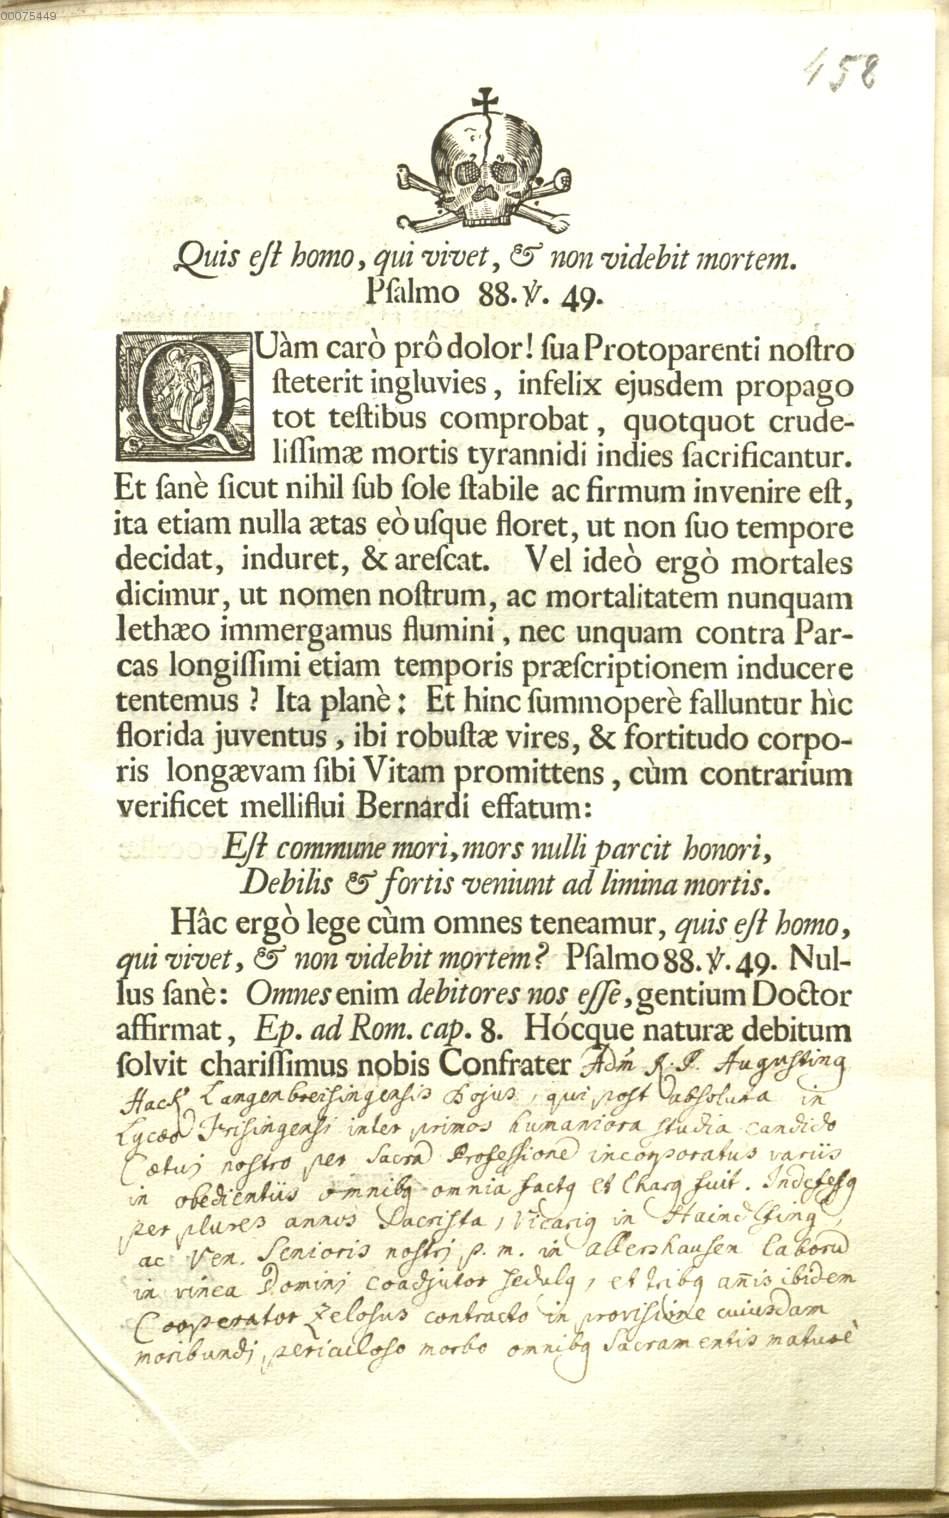 00075449
458
Quis eſt homo, qui vivet, & non videbit mortem.
Pſalmo 88. ℣. 49.
QUàm carò prô dolor! ſua Protoparenti noſtro
ſteterit ingluvies, infelix ejusdem propago
tot teſtibus comprobat, quotquot crude-
liſſimæ mortis tyrannidi indies ſacrificantur.
Et ſanè ſicut nihil ſub ſole ſtabile ac firmum invenire eſt,
ita etiam nulla ætas eò uſque floret, ut non ſuo tempore
decidat, induret, & areſcat. Vel ideò ergò mortales
dicimur, ut nomen noſtrum, ac mortalitatem nunquam
lethæo immergamus flumini, nec unquam contra Par-
cas longiſſimi etiam temporis præſcriptionem inducere
tentemus? Ita planè: Et hinc ſummoperè falluntur hìc
florida juventus, ibi robuſtæ vires, & fortitudo corpo-
ris longævam ſibi Vitam promittens, cùm contrarium
verificet melliflui Bernardi effatum:
Eſt commune mori, mors nulli parcit honori,
Debilis & fortis veniunt ad limina mortis.
Hâc ergò lege cùm omnes teneamur, quis eſt homo,
qui vivet, & non videbit mortem? Pſalmo 88. ℣. 49. Nul-
lus ſanè: Omnes enim debitores nos eſſe, gentium Doctor
affirmat, Ep. ad Rom. cap. 8. Hócque naturæ debitum
ſolvit chariſſimus nobis Confrater Adm̃ R. P. Augustinq
Hack Langenbreisingensis Bojus, qui post absoluta in
Lycæo Frisingensi inter primos humaniora studia candido
Cætui nostro per Sacrã Professionẽ incorporatus variis
in obedientiis omnibq omnia factq et Charq fuit. Indefessq
per plures annos Sacrista, Vicariq in
ac Ven. Senioris nostrj p. m. in Allershausen laborũ
in vinea Dominj coadjutor sedulq, et tribq añis ibidem
Cooperator Zelosus contracto in provisione cuiusdam
moribundj periculoso morbo omnibq Sacramentis maturè